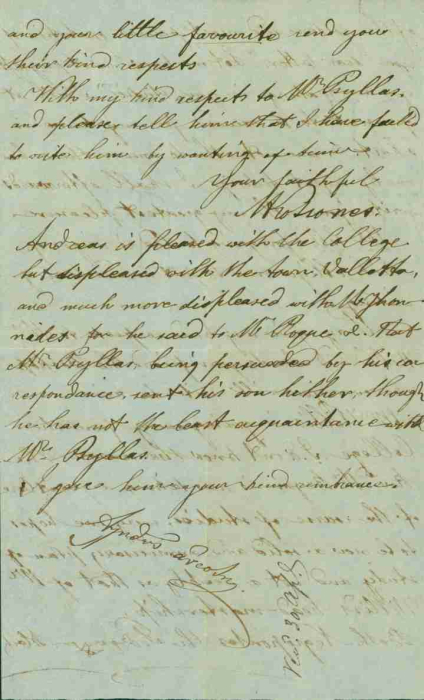 and your little favourite send you
their kind respects
With my kind respects to Mr. Psyllas.
and please, tell him that I have faild
to write him by wanting of time.
Your faithful
Andreas is pleased with the College
but displeased with the town, Valletta,
and much more displeased with Mr
for he said to Mr that
Mr. Psyllas, being persuaded by his cor
respondance, sent his son hither, though
he has not the least acquaintance with
Mr. Psyllas.
I gave him your kind